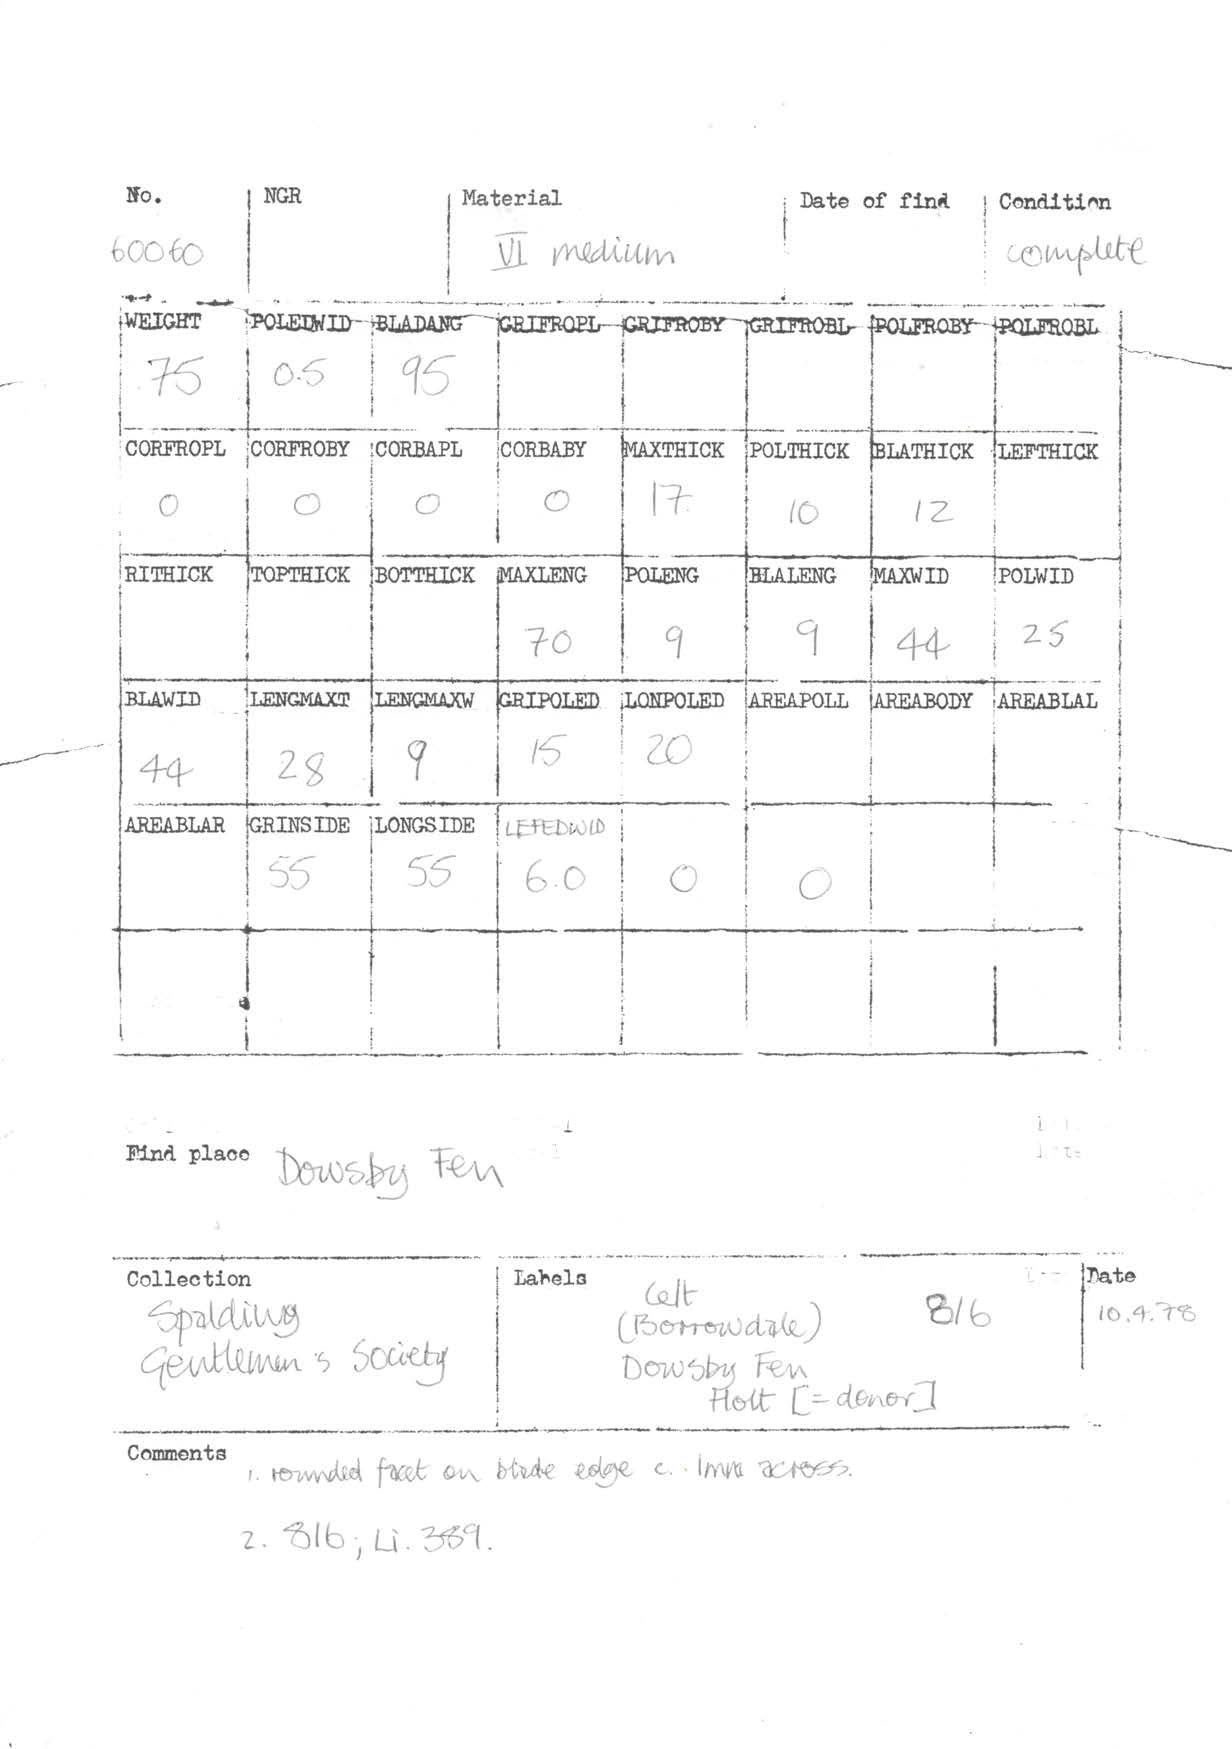 No. NGR Material Date of find Condition
60060 VI medium complete
WEIGHT POLEDWID BLADANG GRIFROPL GRIFROBY GRIFROBL POLFROBY POLFROBL
75 0.5 95
CORFROPL CORFROBY CORBAPL CORBABY MAXTHICK POLTHICK BLATHICK LEFTHICK
0 0 0 0 17 10 12
RITHICK TOPTHICK BOTTHICK MAXLENG POLENG BLALENG MAXWID POLWID
70 9 9 44 25
BLAWID LENGMAXT LENGMAXW GRIPOLED LONPOLED AREAPOLL AREABODY AREABLAL
44 28 9 15 20
AREABLAR GRINSIDE LONGSIDE LEFEDWID
55 55 6.0 0 0
Find place Dowsby Fen
Collection Labels Date
Spalding
Gentlemen's Society
Celt
(Borrowdale) 816
Dowsby Fen
Holt [= donor]
10.4.78
Comments
1. rounded facet on blade edge c. 1mm across.
2. 816; Li. 389.